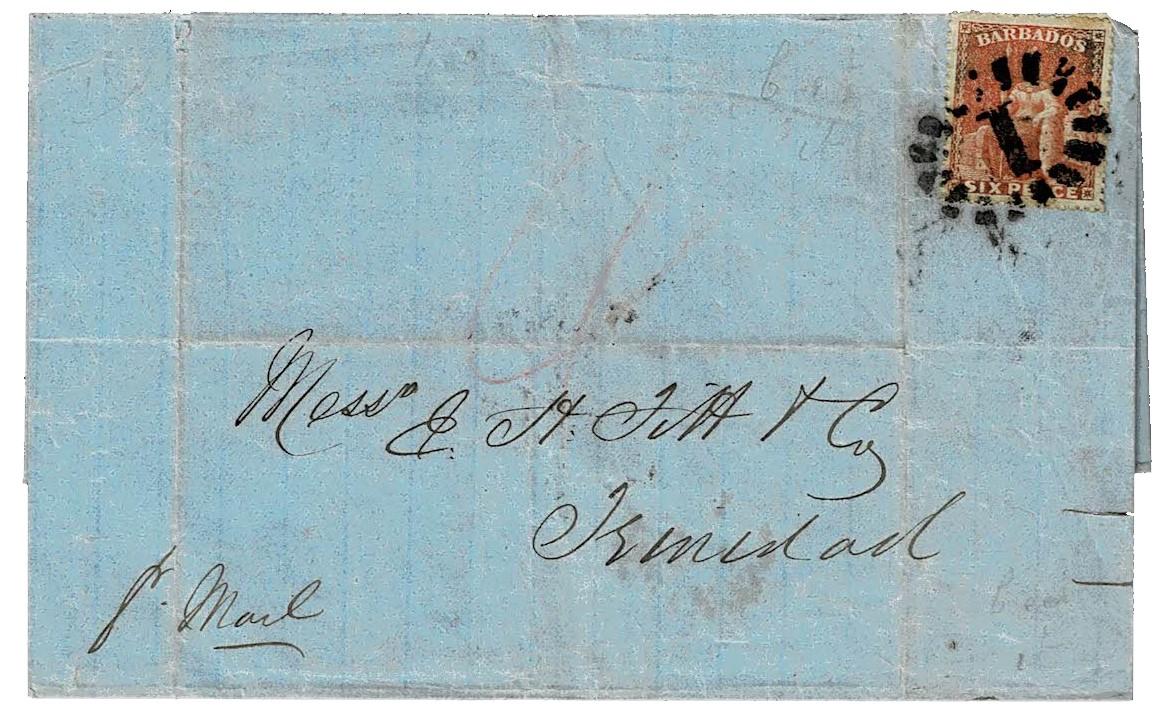 BARBADOS
1
SIX PENCE
Messrs E. H. Fitt & Co
Trinidad
pr. Mail